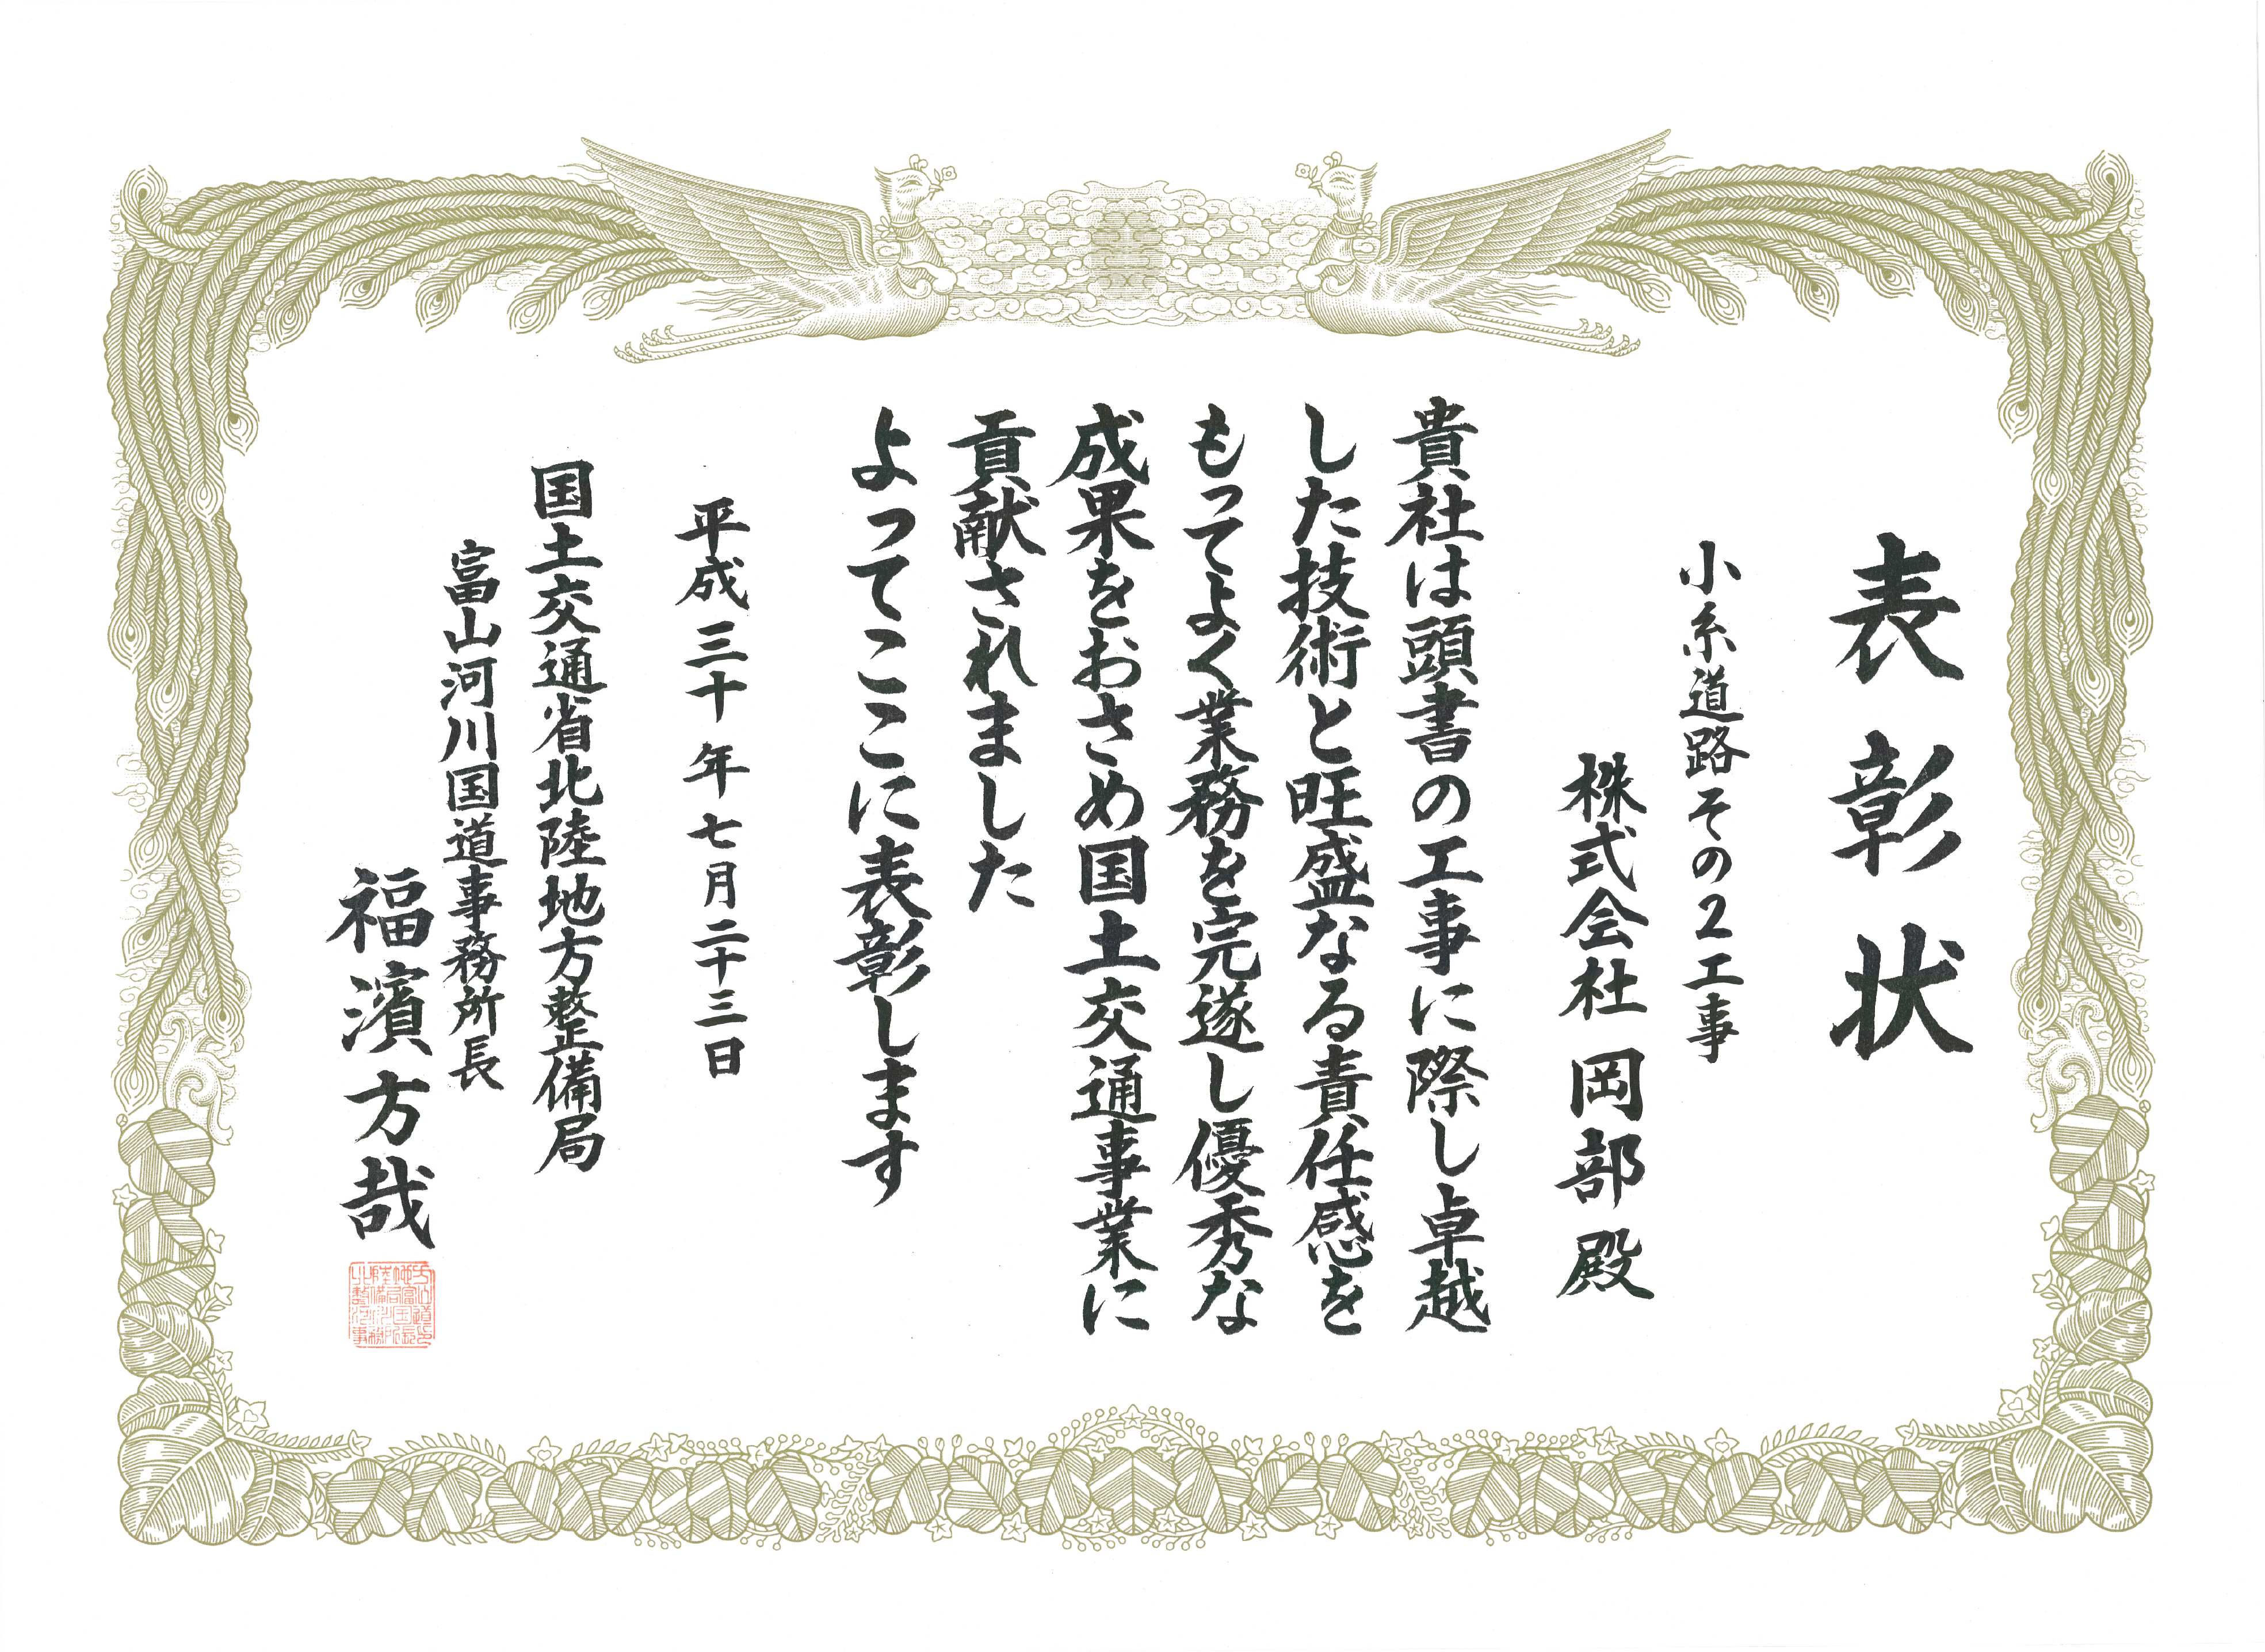 表彰状
小糸道路その2工事
株式会社 岡部 殿
貴社は頭書の工事に際し卓越
した技術と旺盛なる責任感を
もってよく業務を完遂し優秀な
成果をおさめ国土交通事業に
貢献されました
よってここに表彰します
平成三十年七月二十三日
国土交通省北陸地方整備局
富山河川国道事務所長
福濱方哉